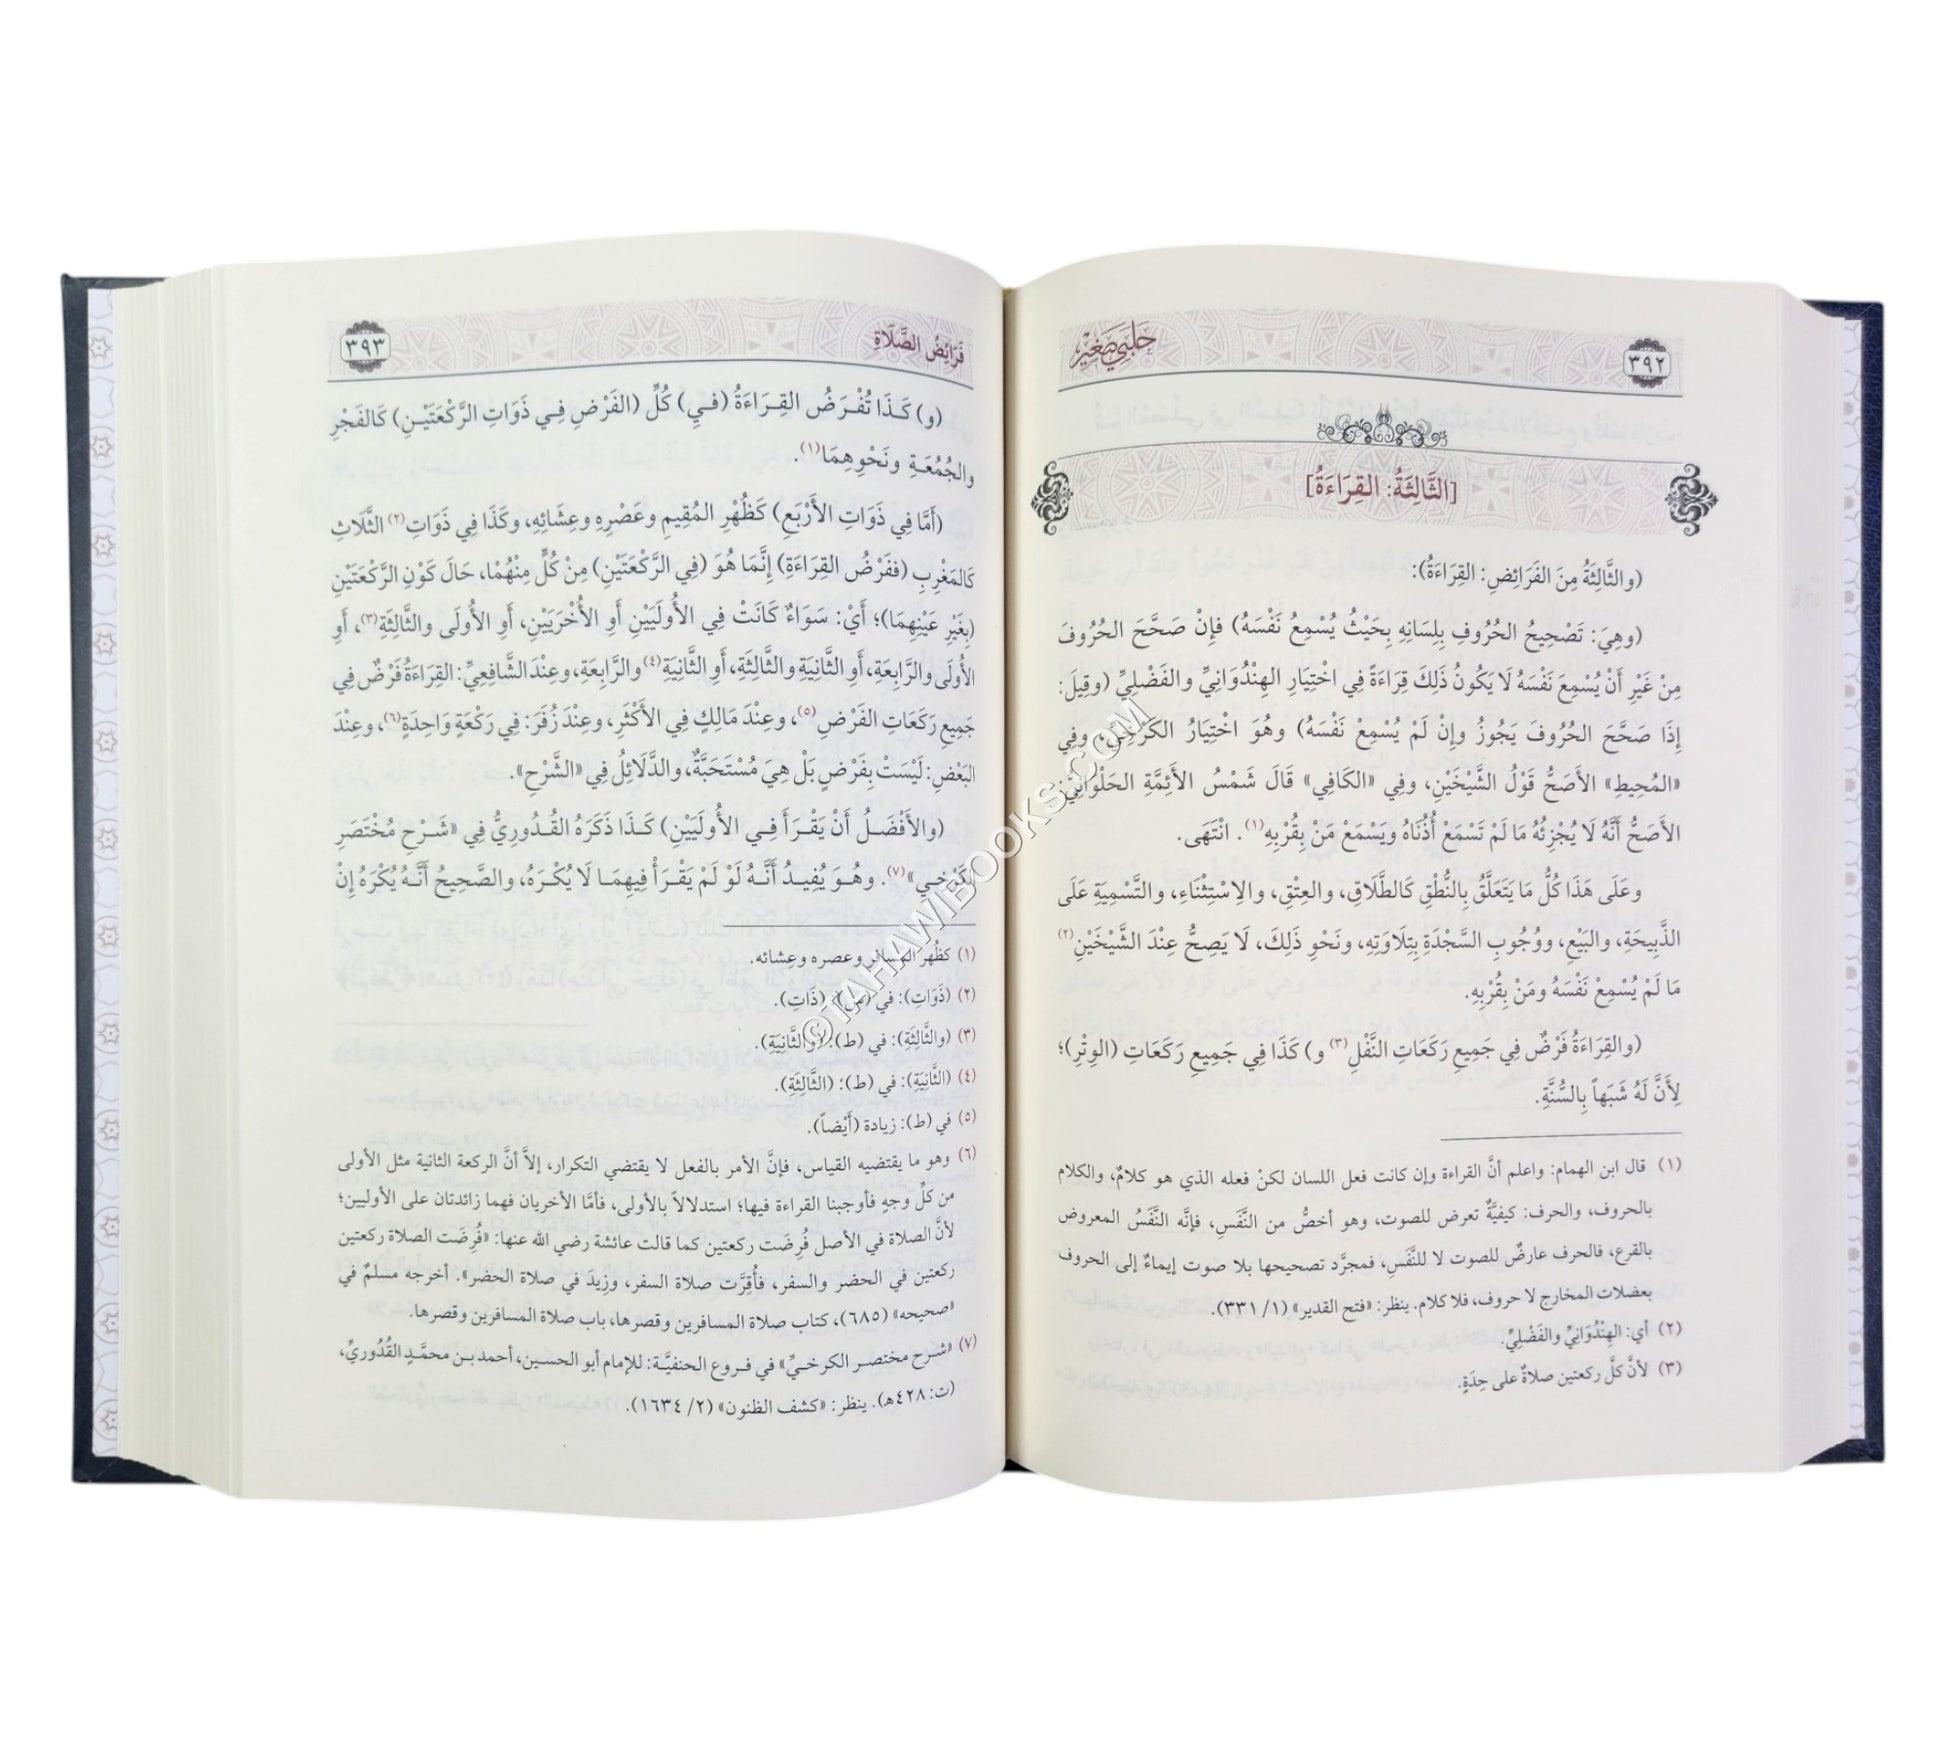 ٣٩٢
حلبي صغير
[الثَّالِثَةُ: القِرَاءَةُ]
(والثَّالِثَةُ مِنَ الفَرَائِضِ: القِرَاءَةُ):
(وهِيَ: تَصْحِيحُ الحُرُوفِ بِلِسَانِهِ بِحَيْثُ يُسْمِعُ نَفْسَهُ) فإِنْ صَحَّحَ الحُرُوفَ
مِنْ غَيْرِ أَنْ يُسْمِعَ نَفْسَهُ لَا يَكُونُ ذَلِكَ قِرَاءَةً فِي اخْتِيَارِ الهِنْدُوَانِيِّ والفَضْلِيِّ (وقِيلَ:
إِذَا صَحَّحَ الحُرُوفَ يَجُوزُ وإِنْ لَمْ يُسْمِعْ نَفْسَهُ) وهُوَ اخْتِيَارُ الكَرْخِيِّ، وفِي
«المُحِيطِ» الأَصَحُّ قَوْلُ الشَّيْخَيْنِ، وفِي «الكَافِي» قَالَ شَمْسُ الأَئِمَّةِ الحَلْوَانِيُّ:
الأَصَحُّ أَنَّهُ لَا يُجْزِئُهُ مَا لَمْ تَسْمَعْ أُذُنَاهُ ويَسْمَعْ مَنْ بِقُرْبِهِ(١). انْتَهَى.
وعَلَى هَذَا كُلُّ مَا يَتَعَلَّقُ بِالنُّطْقِ كَالطَّلَاقِ، والعِتْقِ، والِاسْتِثْنَاءِ، والتَّسْمِيَةِ عَلَى
الذَّبِيحَةِ، والبَيْعِ، ووُجُوبِ السَّجْدَةِ بِتِلَاوَتِهِ، ونَحْوِ ذَلِكَ، لَا يَصِحُّ عِنْدَ الشَّيْخَيْنِ(٢)
مَا لَمْ يُسْمِعْ نَفْسَهُ ومَنْ بِقُرْبِهِ.
(والقِرَاءَةُ فَرْضٌ فِي جَمِيعِ رَكَعَاتِ النَّفْلِ(٣) و) كَذَا فِي جَمِيعِ رَكَعَاتِ (الوِتْرِ)؛
لِأَنَّ لَهُ شَبَهاً بِالسُّنَّةِ.
(١) قال ابن الهمام: واعلم أنَّ القراءة وإن كانت فعل اللسان لكنْ فعله الذي هو كلامٌ، والكلام
بالحروف، والحرف: كيفيَّةٌ تعرض للصوت، وهو أخصُّ من النَّفَسِ، فإنَّه النَّفَسُ المعروض
بالقرع، فالحرف عارضٌ للصوت لا للنَّفَسِ، فمجرَّد تصحيحها بلا صوت إيماءٌ إلى الحروف
بعضلات المخارج لا حروف، فلا كلام. ينظر: «فتح القدير» (١/ ٣٣١).
(٢) أي: الهِنْدُوَانِيِّ والفَضْلِيِّ.
(٣) لأنَّ كلَّ ركعتين صلاةٌ على حِدَةٍ.
فَرَائِضُ الصَّلَاةِ
٣٩٣
(و) كَذَا تُفْرَضُ القِرَاءَةُ (فِي) كُلِّ (الفَرْضِ فِي ذَوَاتِ الرَّكْعَتَيْنِ) كَالفَجْرِ
والجُمُعَةِ ونَحْوِهِمَا(١).
(أَمَّا فِي ذَوَاتِ الأَرْبَعِ) كَظُهْرِ المُقِيمِ وعَصْرِهِ وعِشَائِهِ، وكَذَا فِي ذَوَاتِ(٢) الثَّلَاثِ
كَالمَغْرِبِ (فَفَرْضُ القِرَاءَةِ) إِنَّمَا هُوَ (فِي الرَّكْعَتَيْنِ) مِنْ كُلٍّ مِنْهُمَا، حَالَ كَوْنِ الرَّكْعَتَيْنِ
(بِغَيْرِ عَيْنِهِمَا)؛ أَيْ: سَوَاءٌ كَانَتْ فِي الأُولَيَيْنِ أَوِ الأُخْرَيَيْنِ، أَوِ الأُولَى والثَّالِثَةِ(٣)، أَوِ
الأُولَى والرَّابِعَةِ، أَوِ الثَّانِيَةِ والثَّالِثَةِ، أَوِ الثَّانِيَةِ(٤) والرَّابِعَةِ، وعِنْدَ الشَّافِعِيِّ: القِرَاءَةُ فَرْضٌ فِي
جَمِيعِ رَكَعَاتِ الفَرْضِ(٥)، وعِنْدَ مَالِكٍ فِي الأَكْثَرِ، وعِنْدَ زُفَرَ: فِي رَكْعَةٍ وَاحِدَةٍ(٦)، وعِنْدَ
البَعْضِ: لَيْسَتْ بِفَرْضٍ بَلْ هِيَ مُسْتَحَبَّةٌ، والدَّلَائِلُ فِي «الشَّرْحِ».
(والأَفْضَلُ أَنْ يَقْرَأَ فِي الأُولَيَيْنِ) كَذَا ذَكَرَهُ القُدُورِيُّ فِي «شَرْحِ مُخْتَصَرِ
الكَرْخِي»(٧). وهُوَ يُفِيدُ أَنَّهُ لَوْ لَمْ يَقْرَأْ فِيهِمَا لَا يُكْرَهُ، والصَّحِيحُ أَنَّهُ يُكْرَهُ إِنْ
(١) كظُهر المسافر وعصره وعِشائه.
(٢) (ذَوَاتِ): في (س): (ذَاتِ).
(٣) (والثَّالِثَةِ): في (ط): (والثَّانِيَةِ).
(٤) (الثَّانِيَةِ): في (ط): (الثَّالِثَةِ).
(٥) في (ط): زيادة (أَيْضاً).
(٦) وهو ما يقتضيه القياس، فإنَّ الأمر بالفعل لا يقتضي التكرار، إلاَّ أنَّ الركعة الثانية مثل الأولى
من كلِّ وجهٍ فأوجبنا القراءة فيها؛ استدلالاً بالأولى، فأمَّا الأخريان فهما زائدتان على الأوليين؛
لأنَّ الصلاة في الأصل فُرِضَت ركعتين كما قالت عائشة رضي الله عنها: «فُرِضَت الصلاة ركعتين
ركعتين في الحضر والسفر، فأُقِرَّت صلاة السفر، وزِيدَ في صلاة الحضر». أخرجه مسلمٌ في
«صحيحه» (٦٨٥)، كتاب صلاة المسافرين وقصرها، باب صلاة المسافرين وقصرها.
(٧) «شرح مختصر الكرخيِّ» في فروع الحنفيَّة: للإمام أبو الحسين، أحمد بن محمَّدٍ القُدُوريِّ،
(ت: ٤٢٨هـ). ينظر: «كشف الظنون» (٢/ ١٦٣٤).
©TAHAWIBOOKS.COM